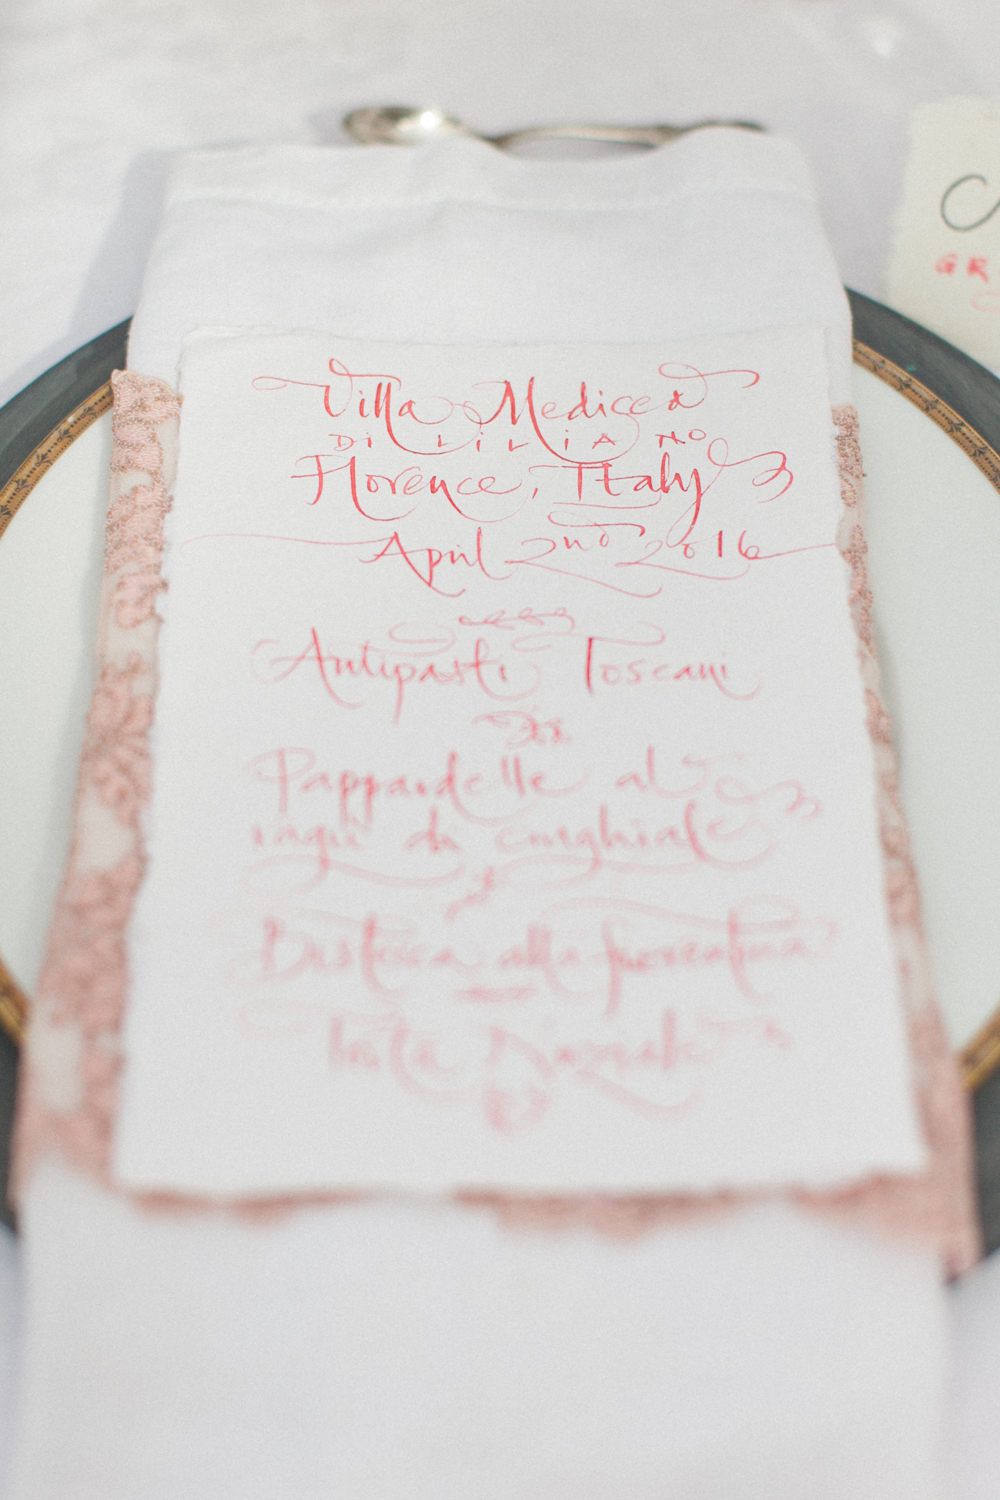 Villa Medicea
DI LILIANO
Florence, Italy
April 2nd 2016
Antipasti Toscani
Pappardelle al
ragù di cinghiale
Bistecca alla fiorentina
Torta Nuziale
GR